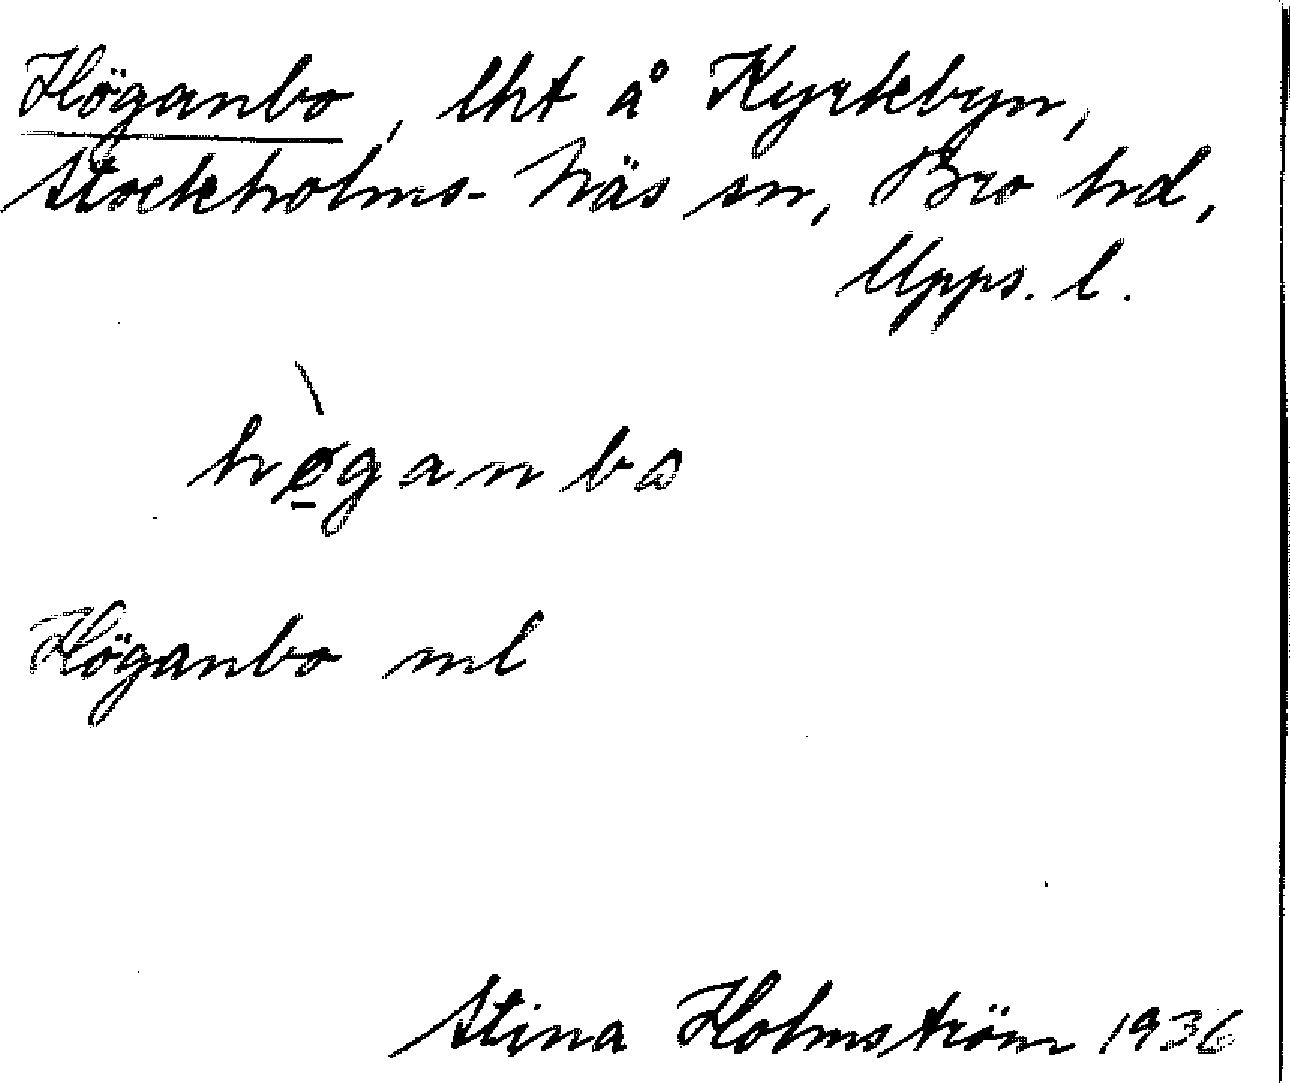 Höganbo, lht å Kyrkbyn,
Stockholms-Näs sn, Bro hd,
Upps. l.
hø̱̀ganbω
Höganbo ml
Stina Holmström 1936